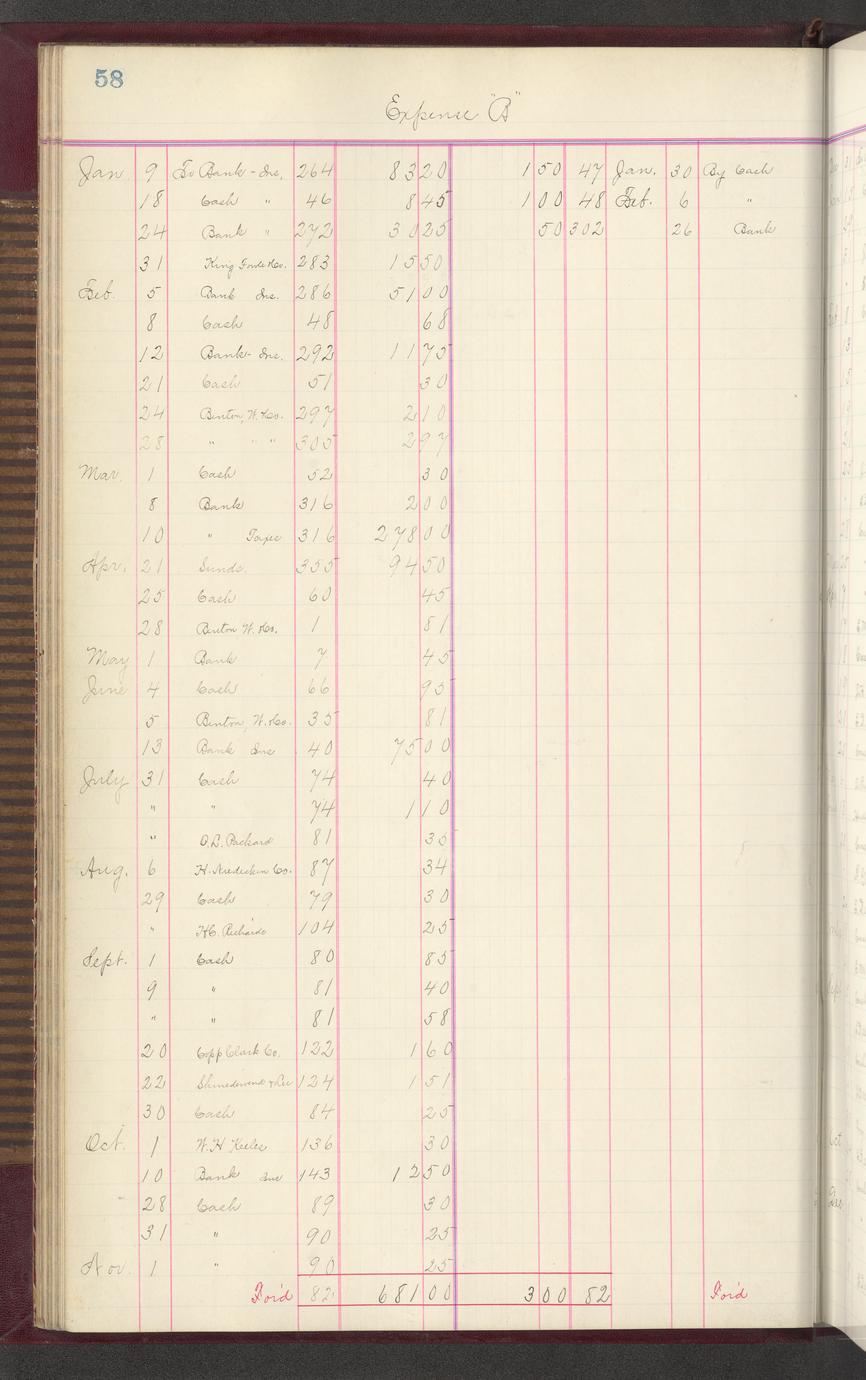 58
Expense "B"
Jan. 9 To Bank - Ins. 264 83 20 1 50 47 Jan. 30 By Cash
18 Cash " 46 8 45 1 00 48 Feb. 6 "
24 Bank " 272 30 25 50 302 26 Bank
31 283 15 50
Feb. 5 Bank Ins. 286 51 00
8 Cash 48 68
12 Bank - Ins. 292 11 75
21 Cash 51 30
24 Benton, W. & Co. 297 2 10
28 " " " 305 2 97
Mar. 1 Cash 52 30
8 Bank 316 2 00
10 " Taxes 316 278 00
Apr. 21 Sunds. 355 94 50
25 Cash 60 45
28 Benton W. & Co. 1 81
May 1 Bank 7 45
June 4 Cash 66 95
5 Benton, W. & Co. 35 81
13 Bank Ins 40 75 00
July 31 Cash 74 40
" " 74 1 10
" O.L. Packard 81 35
Aug. 6 H. Co. 87 34
29 Cash 79 30
" H.C. Richards 104 25
Sept. 1 Cash 80 85
9 " 81 40
" " 81 58
20 Copp Clark Co. 122 1 60
22 124 1 51
30 Cash 84 25
Oct. 1 W.H 136 30
10 Bank Ins 143 12 50
28 Cash 89 30
31 " 90 25
Nov. 1 " 90 25
For'd 82 681 00 3 00 82 For'd